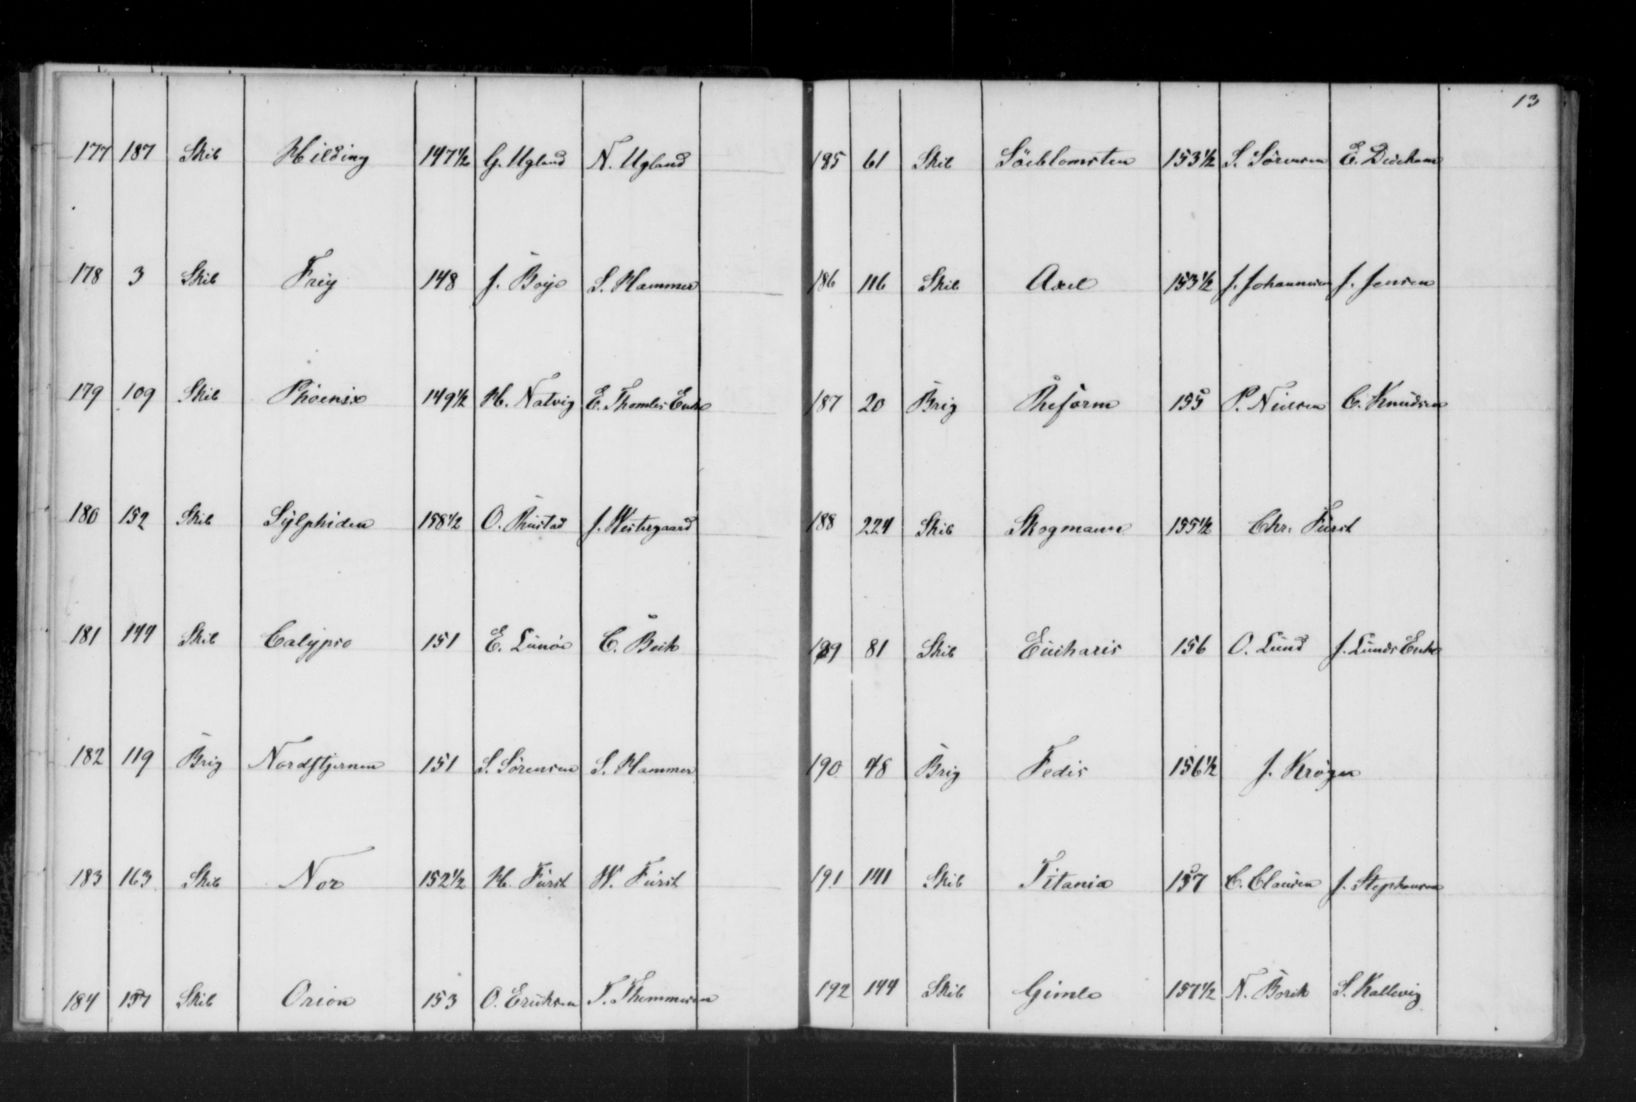 177 187 Skib Hilding 147½ G. Ugland N. Ugland
178 3 Skib Frey 148 J. Boye S. Hammer
179 109 Skib Phoenix 149½ H. Natvig E. Thomles Enke
180 152 Skib Sylphiden 150½ O. Rustad J. Westergaard
181 144 Skib Calypso 151 E. Lunöe C. Boik
182 119 Brig Nordstjernen 151 S. Sörensen S. Hammer
183 163 Skib Nor 152½ H. Fürst W. Fürst
184 157 Skib Orion 153 O. Eriksen T. Thommesen
13
185 61 Skib Söeblomsten 153½ S. Sörensen E. Dedekam
186 116 Skib Axel 153½ J. Johannesen J. Jensen
187 20 Brig Reform 155 P. Nielsen C. Knudsen
188 224 Skib Skogmann 155½ Chr. Fürst
189 81 Skib Eucharis 156 O. Lund J. Lunds Enke
190 48 Brig Fedis 156½ J. Kröger
191 141 Skib Titania 157 C. Clausen J. Stephansen
192 144 Skib Gimle 157½ N. Börik S. Kallevig